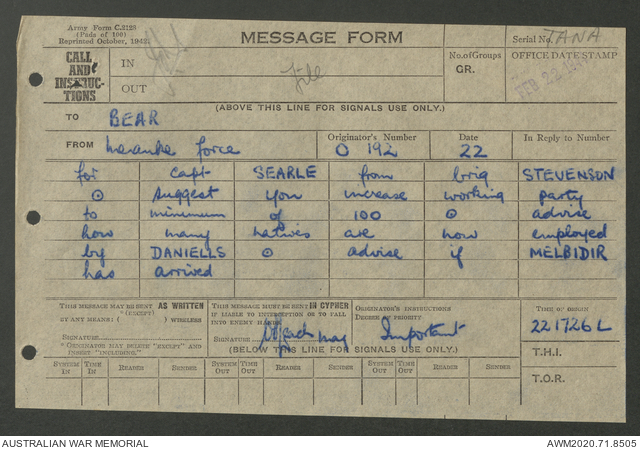 Army Form C.2128
(Pads of 100)
Reprinted October, 1942.
MESSAGE FORM
Serial No. TANA
CALL AND INSTRUCTIONS
IN
OUT
File
No. of Groups
GR.
OFFICE DATE STAMP
FEB 22
(ABOVE THIS LINE FOR SIGNALS USE ONLY.)
TO BEAR
FROM Merauke force
Originator's Number
O 192
Date
22
In Reply to Number
for Capt SEARLE from brig STEVENSON
⊙ suggest you increase working party
to minimum of 100 ⊙ advise
how many natives are now employed
by DANIELLS ⊙ advise if MELBIDIR
has arrived
THIS MESSAGE MAY BE SENT AS WRITTEN
(EXCEPT)
BY ANY MEANS: ( ) WIRELESS
SIGNATURE
* ORIGINATOR MAY DELETE "EXCEPT" AND
INSERT "INCLUDING."
THIS MESSAGE MUST BE SENT IN CYPHER
IF LIABLE TO INTERCEPTION OR TO FALL
INTO ENEMY HANDS.
SIGNATURE
ORIGINATOR'S INSTRUCTIONS
DEGREE OF PRIORITY
Important
TIME OF ORIGIN
221726L
(BELOW THIS LINE FOR SIGNALS USE ONLY.)
T.H.I.
T.O.R.
SYSTEM IN TIME IN READER SENDER SYSTEM OUT TIME OUT READER SENDER SYSTEM OUT TIME OUT READER SENDER
AUSTRALIAN WAR MEMORIAL
AWM2020.71.8505